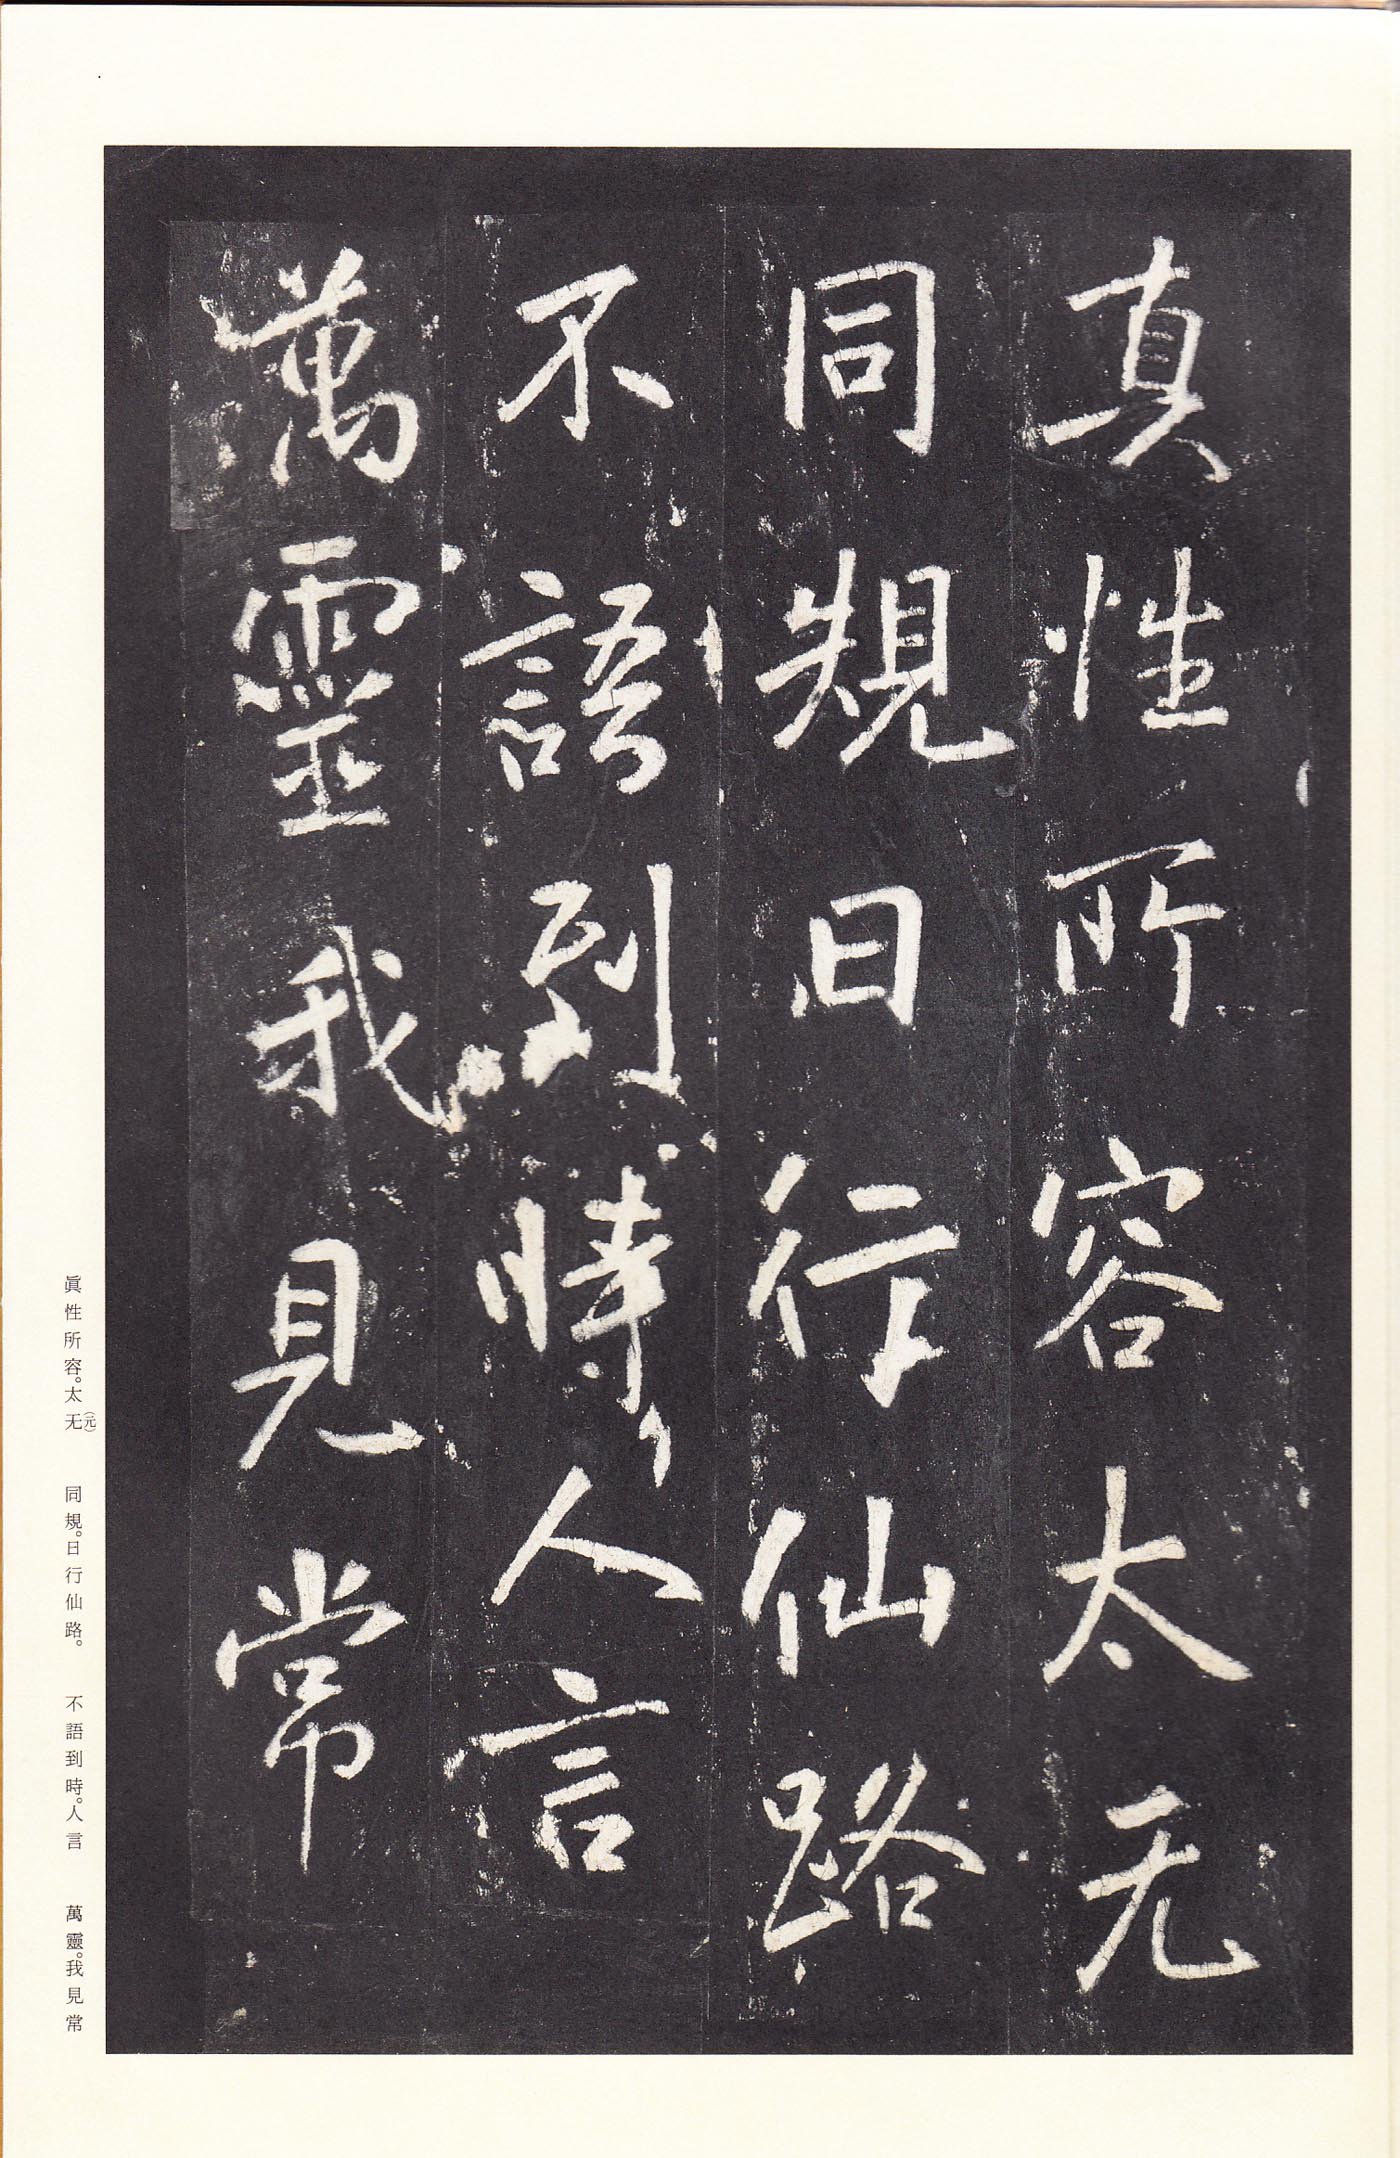 真性所容太无
同規日行仙路
不語到時人言
萬靈我見常
眞性所容。太无(元)　同規。日行仙路。　不語到時。人言　萬靈。我見常